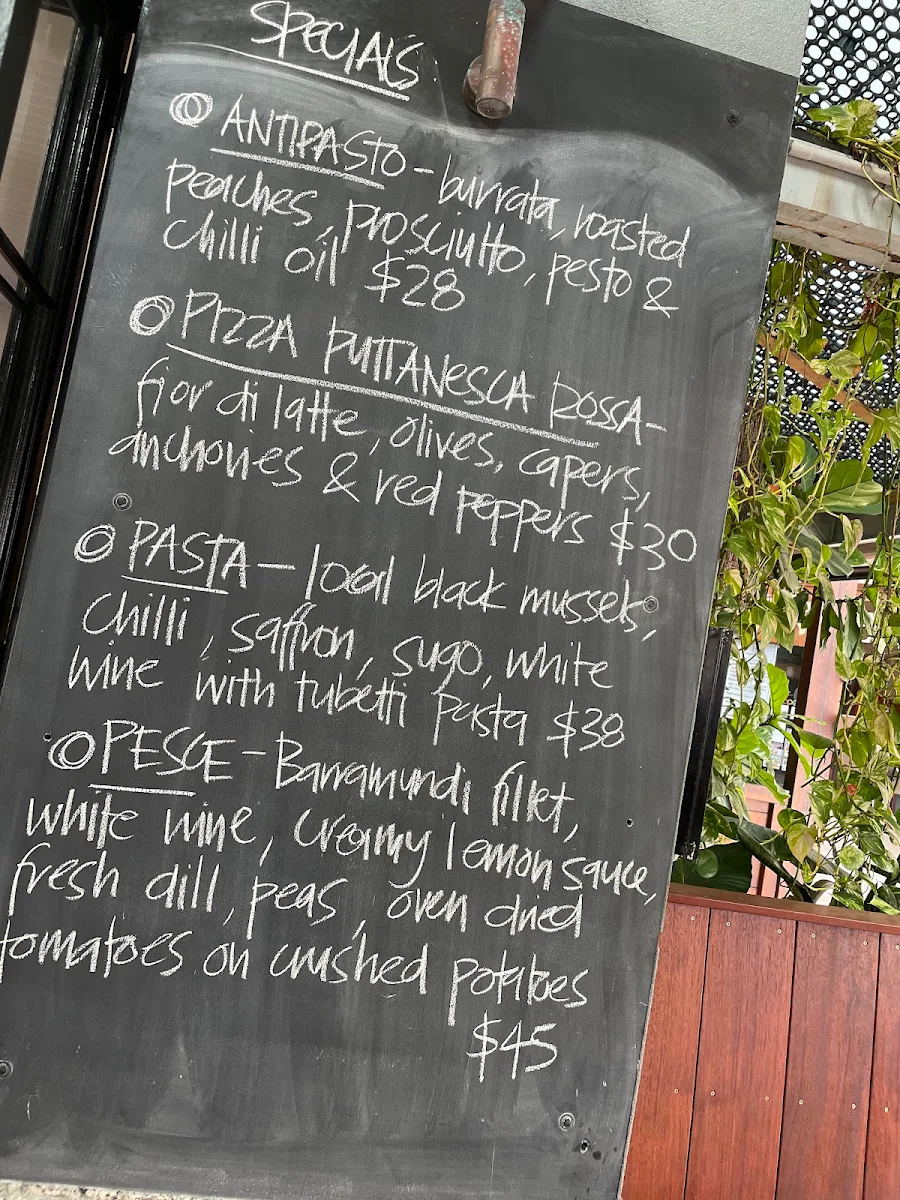 SPECIALS
ANTIPASTO - burrata, roasted
peaches, prosciutto, pesto &
chilli oil $28
PIZZA PUTTANESCA ROSSA-
fior di latte, olives, capers,
anchovies & red peppers $30
PASTA - local black mussels,
chilli, saffron, sugo, white
wine with tubetti pasta $38
PESCE - Barramundi fillet,
white wine, creamy lemon sauce,
fresh dill, peas, oven dried
tomatoes on crushed potatoes
$45